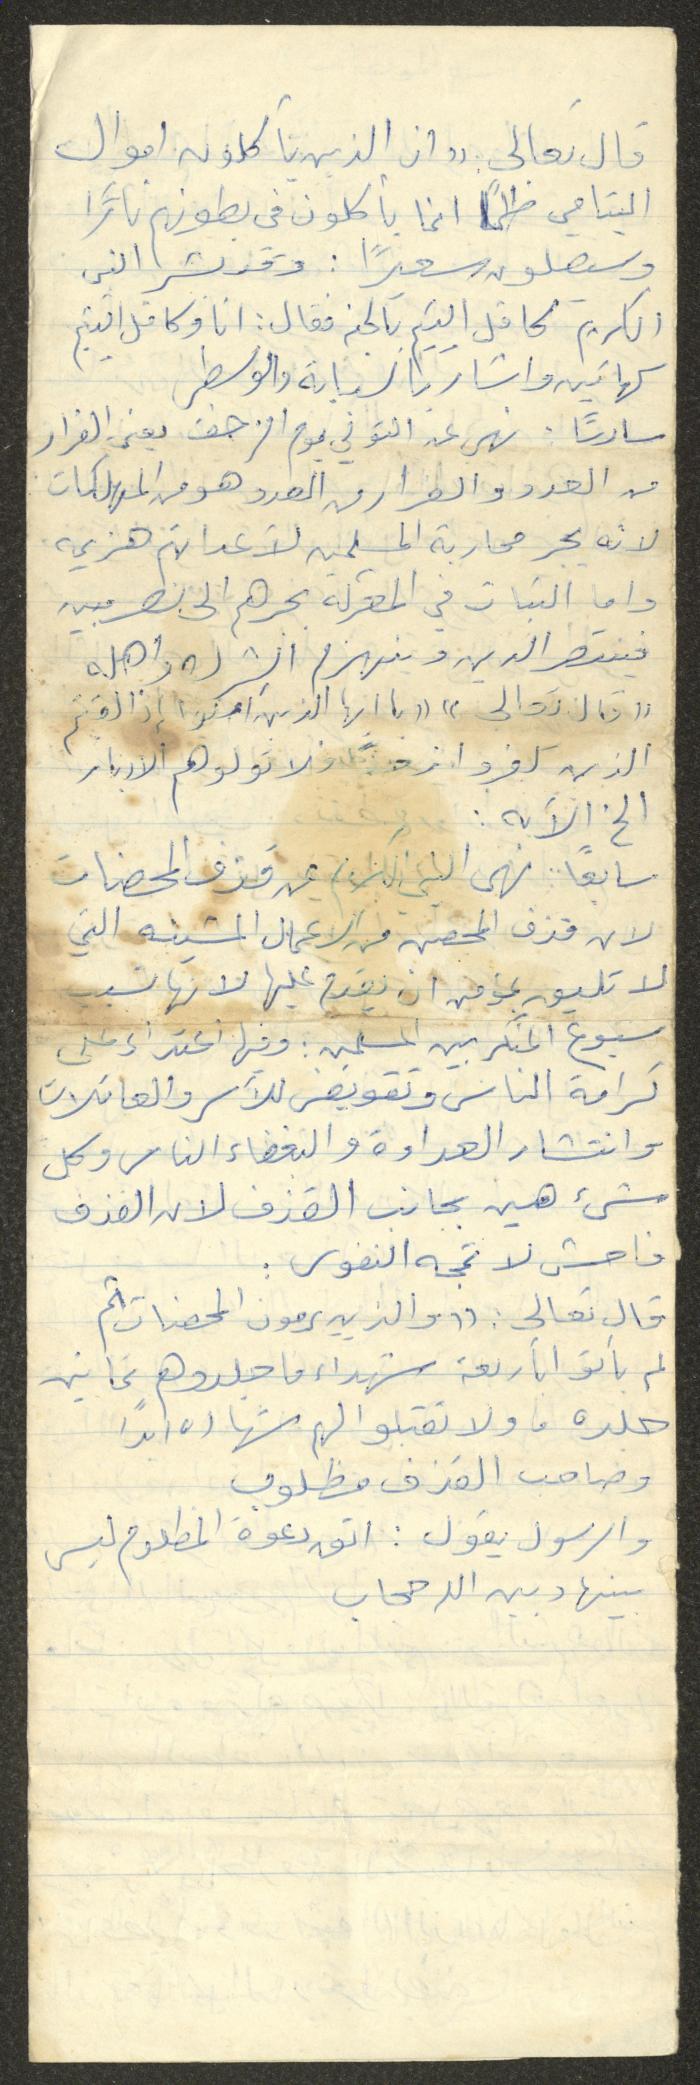 قال تعالى: «ان الذين يأكلون اموال
اليتامى ظلمًا انما يأكلون في بطونهم نارًا
وسيصلون سعيرًا: وقد بشر النبي
الكريم كافل اليتيم بالجنه فقال: انا وكافل اليتيم
كهاتين واشار بالسبابة والوسطى
سادسًا: نهى عن التولي يوم الزحف يعني الفرار
من العدو والفرار من العدو هو من المهلكات
لانه يجر محاربة المسلمين لأعدائهم هزيمه
واما الثبات في المعركة يجرهم الى نصر مبين
فينتصر الدين وينهزم الشرك واهله
«قال تعالى» «يا ايها الذين آمنوا إذا لقيتم
الذين كفروا زحفًا فلا تولوهم الأدبار
الخ الآيه:
سابعًا: نهى النبي الكريم عن قذف المحصنات
لان قذف المحصن من الاعمال المشينه التي
لا تليق بمؤمن ان يقدم عليها لانها تسبب
سيوع المنكر بين المسلمين: وفيها اعتداء على
كرامة الناس وتقويض للأسر والعائلات
وانتشار العداوة والبغضاء الناس وكل
شيء هين بجانب القذف لان القذف
فاحش لا تمجه النفوس:
قال تعالى: «والذين يرمون المحصنات ثم
لم يأتوا بأربعة شهداء فاجلدوهم ثمانين
جلده ولا تقبلوا لهم شهاده ابدًا
وصاحب القذف مظلوب
والرسول يقول: اتق دعوة المظلوم ليس
بينها وبين الله حجاب